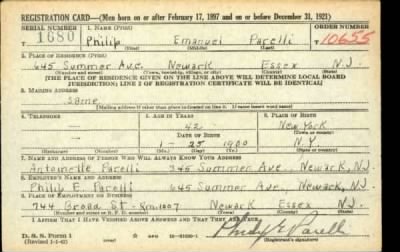 REGISTRATION CARD—(Men born on or after February 17, 1897 and on or before December 31, 1921)
SERIAL NUMBER 1. NAME (Print) ORDER NUMBER
T 1680 Philip Emanuel Parelli T10655
(First) (Middle) (Last)
2. PLACE OF RESIDENCE (Print)
645 Summer Ave. Newark Essex N.J.
(Number and street) (Town, township, village, or city) (County) (State)
[THE PLACE OF RESIDENCE GIVEN ON THE LINE ABOVE WILL DETERMINE LOCAL BOARD
JURISDICTION; LINE 2 OF REGISTRATION CERTIFICATE WILL BE IDENTICAL]
3. MAILING ADDRESS
Same
[Mailing address if other than place indicated on line 2. If same insert word same]
4. TELEPHONE 5. AGE IN YEARS 6. PLACE OF BIRTH
42 New York
DATE OF BIRTH (Town or county)
1 - 25 1900 N.Y.
(Exchange) (Number) (Mo.) (Day) (Yr.) (State or country)
7. NAME AND ADDRESS OF PERSON WHO WILL ALWAYS KNOW YOUR ADDRESS
Antoinette Parelli 645 Summer Ave. Newark, N.J.
8. EMPLOYER'S NAME AND ADDRESS
Philip E. Parelli 645 Summer Ave., Newark, N.J.
9. PLACE OF EMPLOYMENT OR BUSINESS
744 Broad St - Rm 1007 Newark Essex N.J.
(Number and street or R. F. D. number) (Town) (County) (State)
I AFFIRM THAT I HAVE VERIFIED ABOVE ANSWERS AND THAT THEY ARE TRUE.
D. S. S. Form 1
(Revised 1-1-42) (over)
Philip E Parelli
(Registrant's signature)